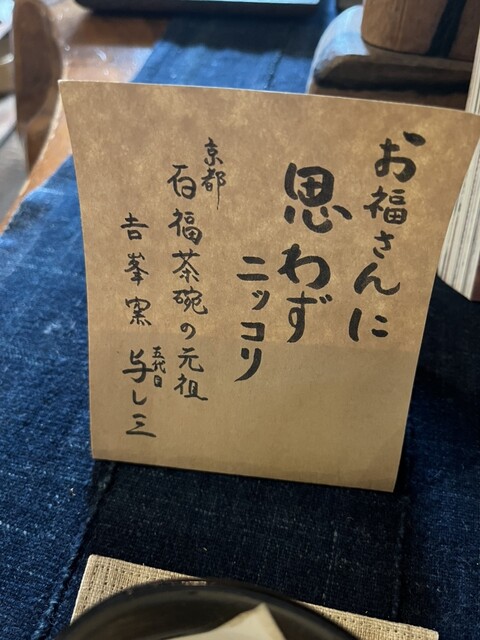 お福さんに
思わず
ニッコリ
京都
百福茶碗の元祖
吉峯窯 五代目 与し三